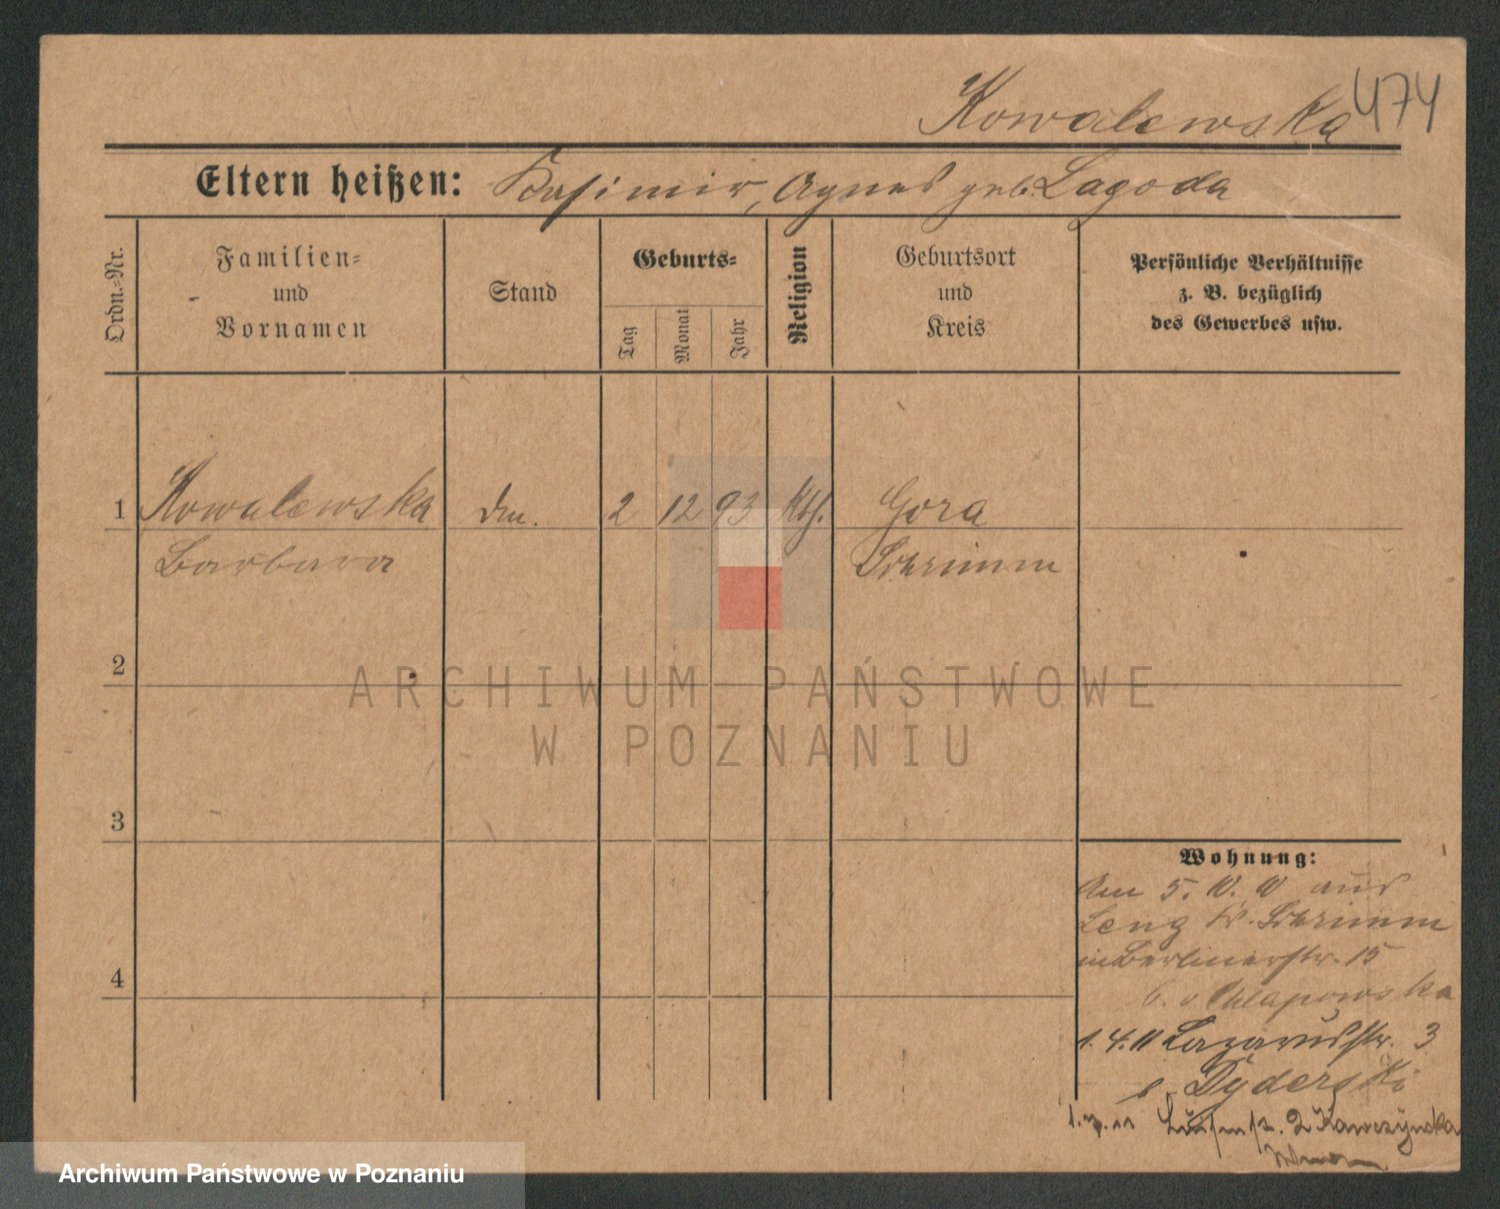 Kowalewska 474
Eltern heißen: Kasimir, Agnes geb. Lagoda
Ordn.-Nr.
Familien- und Vornamen
Stand
Geburts-
Tag
Monat
Jahr
Religion
Geburtsort und Kreis
Persönliche Verhältnisse
z. B. bezüglich
des Gewerbes usw.
1 Kowalewska 2 12 93 Kth. Gora
Barbara Schrimm
2
ARCHIWUM PAŃSTWOWE
W POZNANIU
3
4
Wohnung:
Am 5. aus
Leng Kr. Schrimm
in Berlinerstr. 15
b. v Chlapowska
1.4.11 Lazarusstr. 3
b. Dyderski
Luisenstr. 2 Kawczynska
Archiwum Państwowe w Poznaniu